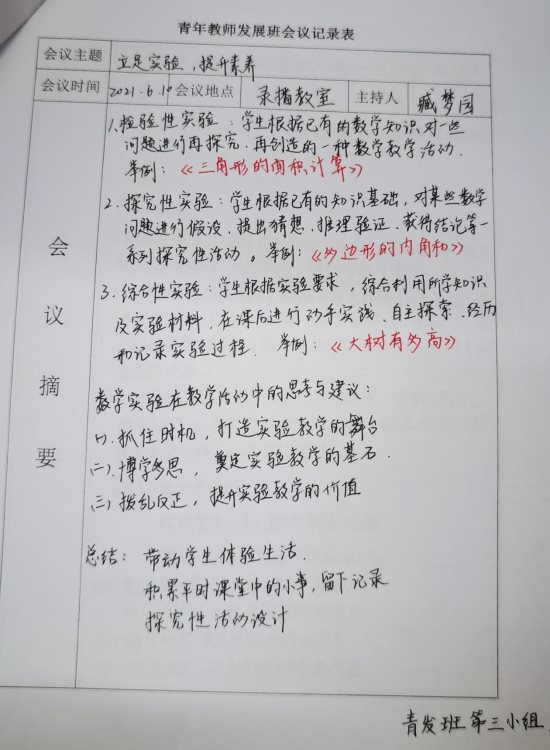 青年教师发展班会议记录表
会议主题 立足实验，提升素养
会议时间 2021.6.10 会议地点 录播教室 主持人 臧梦园
会议摘要
1.检验性实验：学生根据已有的数学知识对一些
问题进行再探究，再创造的一种数学教学活动.
举例：《三角形的面积计算》
2.探究性实验：学生根据已有的知识基础，对某些数学
问题进行假设、提出猜想、推理验证、获得结论等一
系列探究性活动。举例：《多边形的内角和》
3.综合性实验：学生根据实验要求，综合利用所学知识
及实验材料，在课后进行动手实践、自主探索、经历
和记录实验过程. 举例：《大树有多高》
数学实验在教学活动中的思考与建议：
(一).抓住时机，打造实验教学的舞台
(二).博学多思，奠定实验教学的基石.
(三)拨乱反正，提升实验教学的价值
总结：带动学生体验生活.
积累平时课堂中的小事，留下记录
探究性活动设计
青发班第三小组